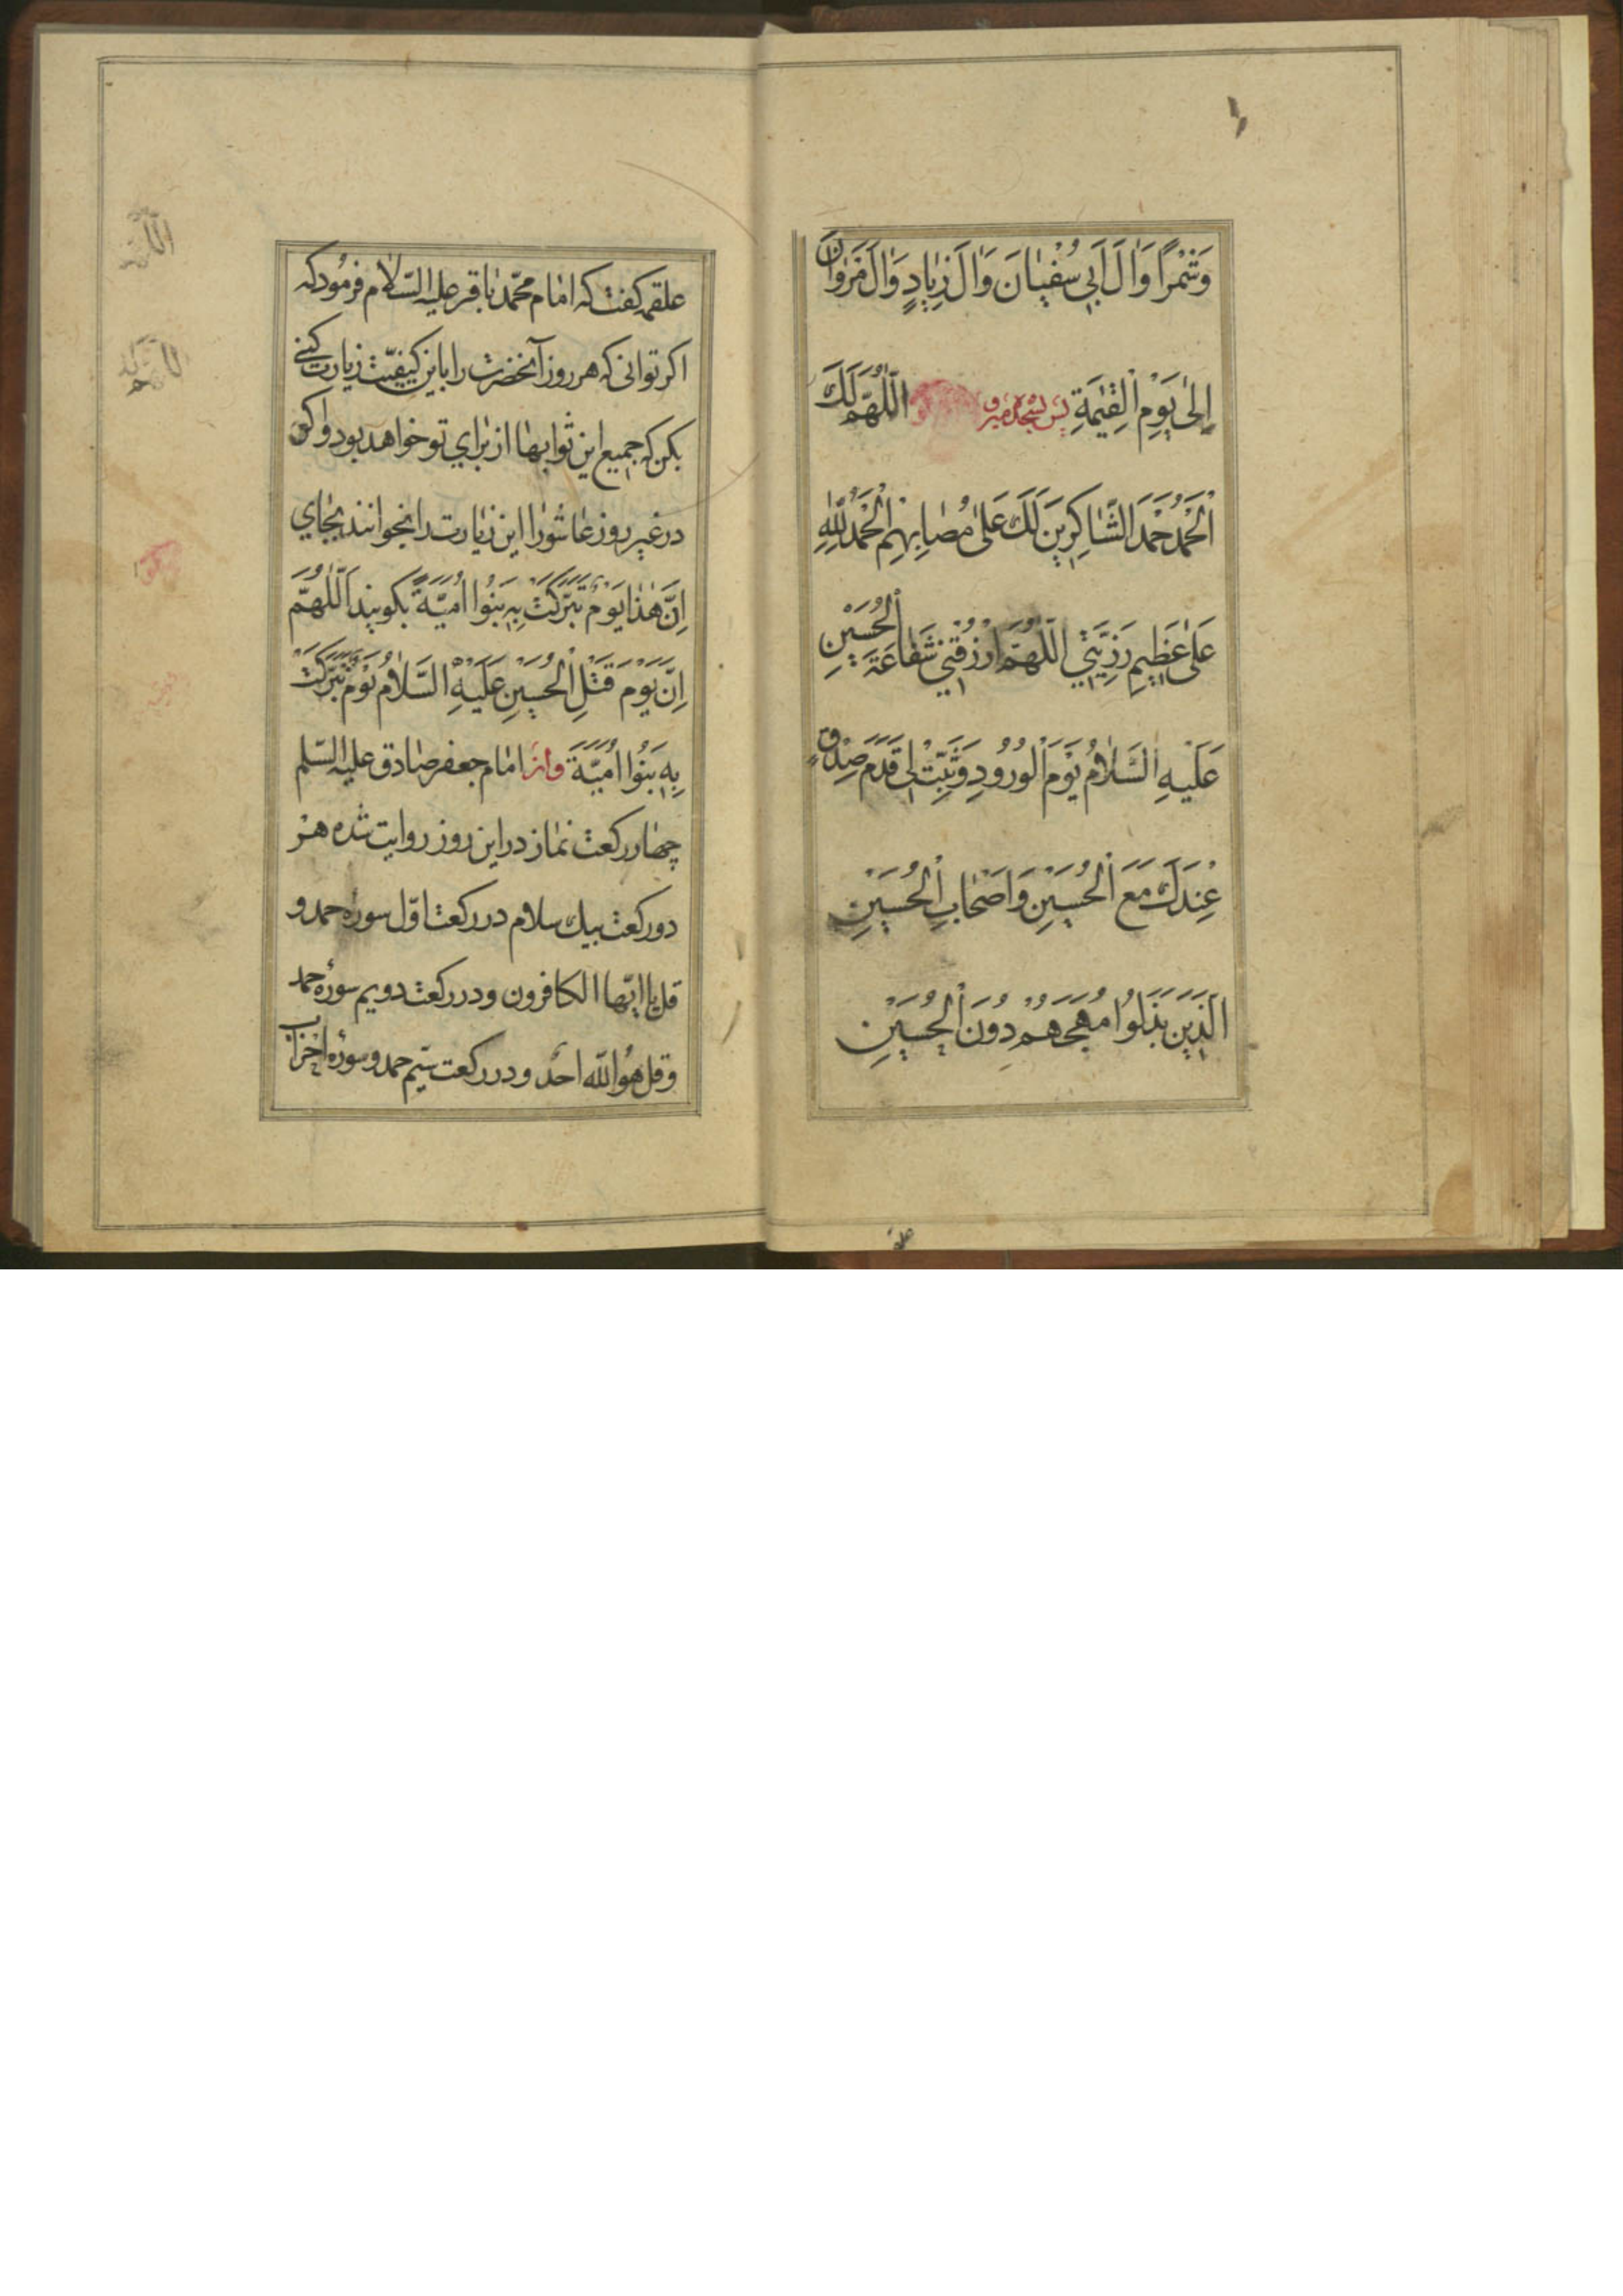 وَشِمْرًا وَالَ اَبِي سُفْيٰانَ وَالَ زِيٰادٍ وَالَ مَرْوٰانَ
اِلىٰ يَوْمِ الْقِيٰمَةِ پس بسجده میروی اَللّٰهُمَّ لَكَ
الْحَمْدُ حَمْدَ الشّٰاكِرِينَ لَكَ عَلىٰ مُصٰابِهِمْ اَلْحَمْدُ لِلّٰهِ
عَلىٰ عَظِيمِ رَزِيَّتِي اَللّٰهُمَّ ارْزُقْنِي شَفٰاعَةَ الْحُسَيْنِ
عَلَيْهِ السَّلٰامُ يَوْمَ الْوُرُودِ وَثَبِّتْ لِي قَدَمَ صِدْقٍ
عِنْدَكَ مَعَ الْحُسَيْنِ وَاَصْحٰابِ الْحُسَيْنِ
اَلَّذِينَ بَذَلُوا مُهَجَهُمْ دُونَ الْحُسَيْنِ
علقمه كفت كه امام محمّد باقر عليه السّلام فرمود كه
اكر توانى كه هر روز آنحضرت را باين كيفيّت زيارت كنى
بكن كه جميع اين ثوابها از براي تو خواهد بود و اكر
در غير روز عاشورا اين زيارت را بخوانند بجاي
اِنَّ هٰذٰا يَوْمٌ تَبَرَّكَتْ بِهِ بَنُوا اُمَيَّةَ بكويند اَللّٰهُمَّ
اِنَّ يَوْمَ قَتْلِ الْحُسَيْنِ عَلَيْهِ السَّلٰامُ يَوْمٌ تَبَرَّكَتْ
بِهِ بَنُوا اُمَيَّةَ و از امام جعفر صادق عليه السّلم
چهار ركعت نماز در اين روز روايت شده هر
دو ركعت بيك سلام در ركعت اوّل سورهٔ حمد و
قل يا ايّها الكافرون و در ركعت دويم سورهٔ حمد
و قل هو اللّه احد و در ركعت سيّم حمد و سورهٔ احزاب